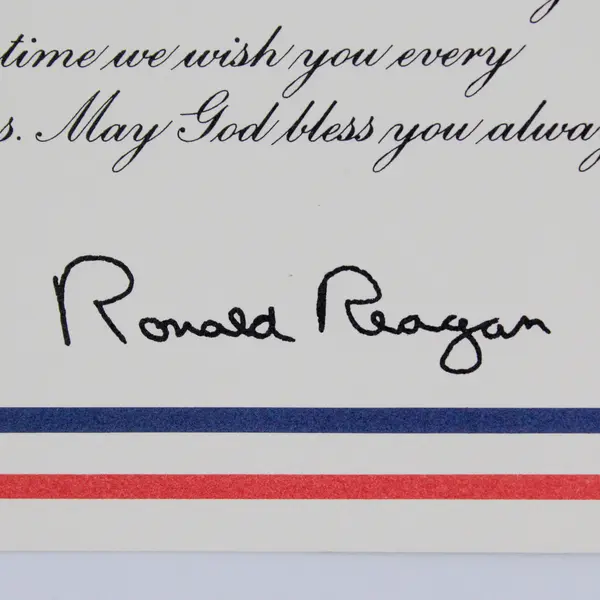 time we wish you every
s. May God bless you alway
Ronald Reagan